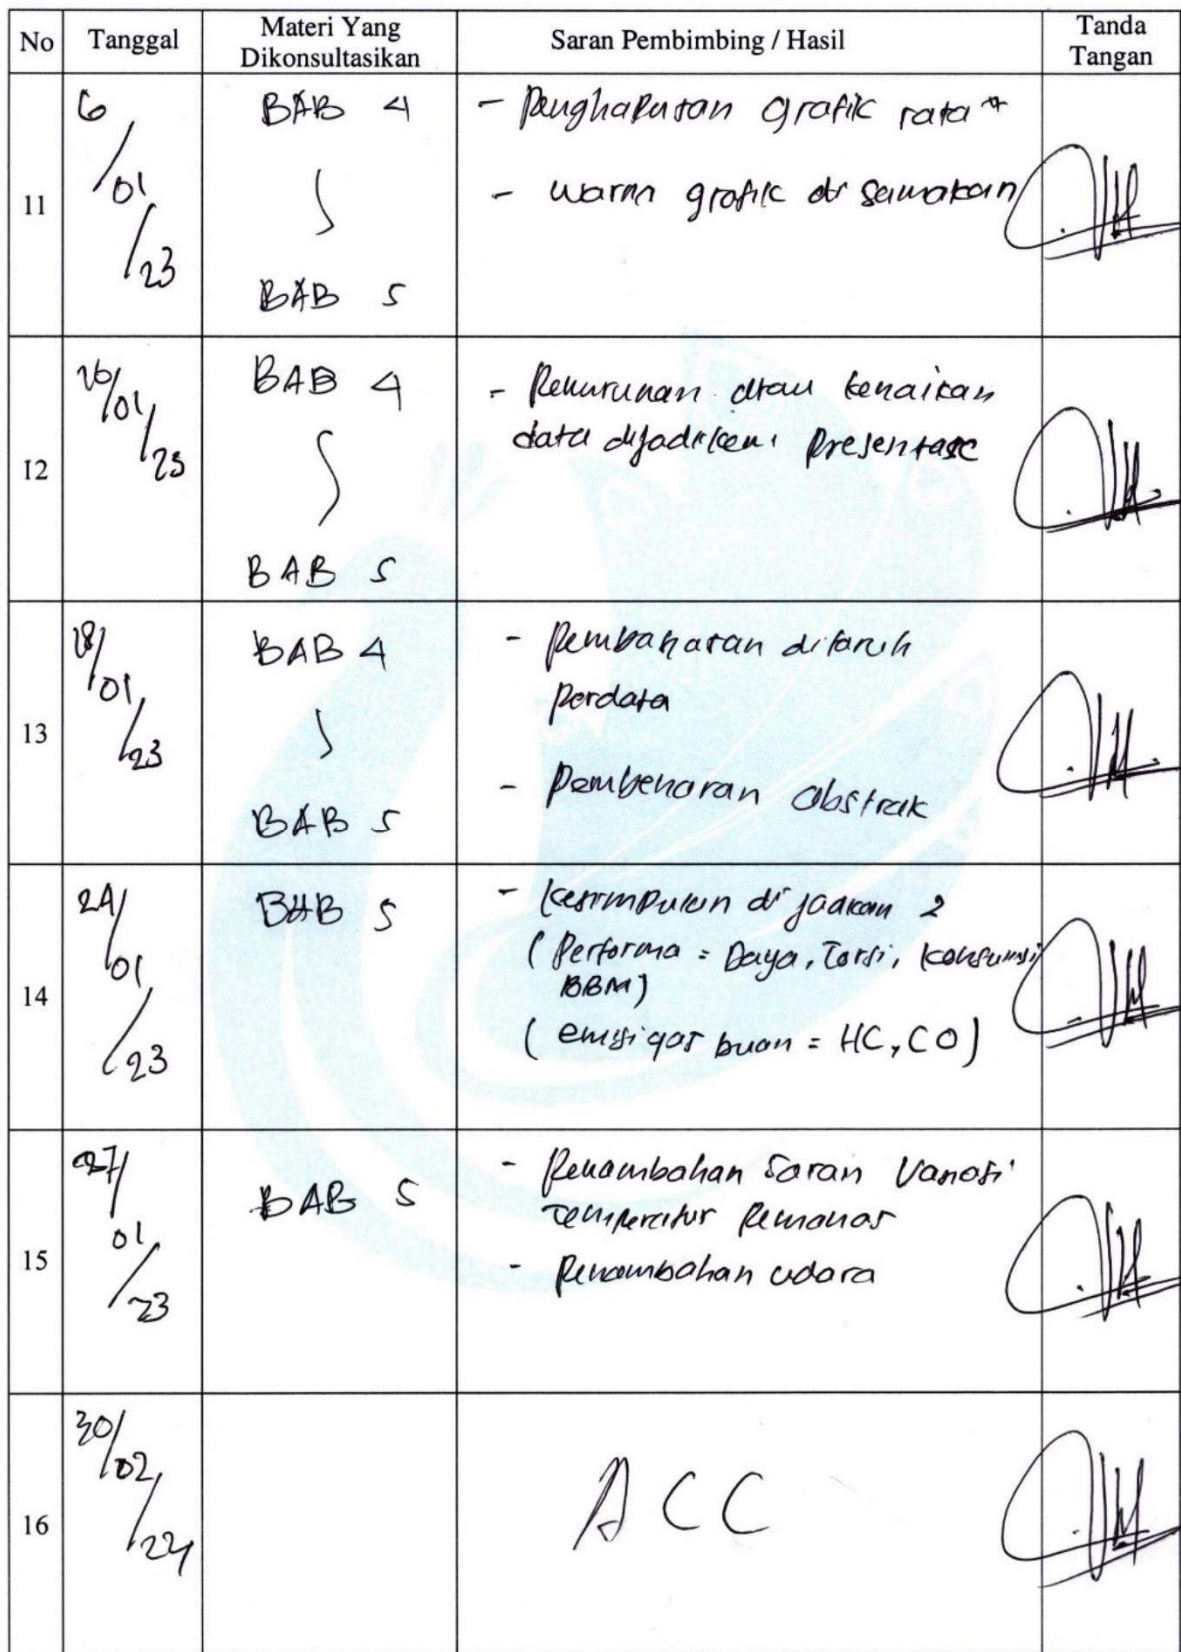 No Tanggal Materi Yang Dikonsultasikan Saran Pembimbing / Hasil Tanda Tangan
11 6/01/23 BAB 4 - Penghapusan grafik rata"
- warna grafik di samakan
BAB 5
12 16/01/23 BAB 4 - Penurunan atau kenaikan
data dijadikan presentase
BAB 5
13 18/01/23 BAB 4 - Pembahasan ditaruh
perdata
- Pembenaran abstrak
BAB 5
14 24/01/23 BAB 5 - Kesimpulan di jadikan 2
(Performa = Daya, Torsi, Konsumsi
BBM)
(emisi gas buan = HC, CO)
15 27/01/23 BAB 5 - Penambahan saran Variasi
Temperatur Pemanas
- Penambahan udara
16 30/02/24 ACC